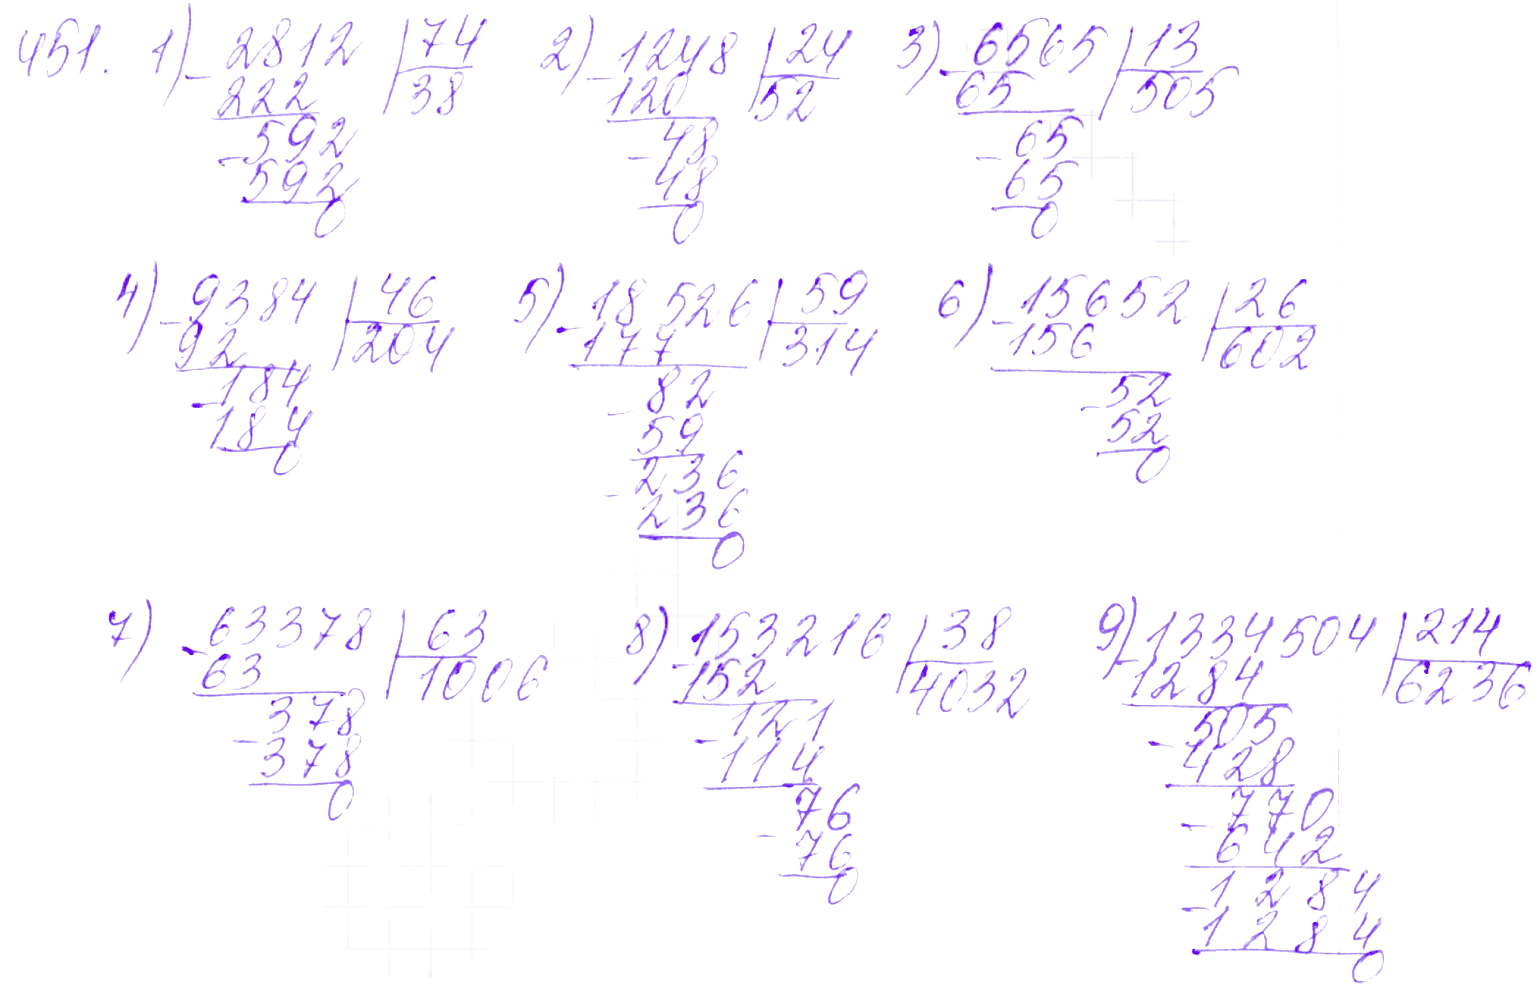 451. 1) - 2812 | 74 2) - 1248 | 24 3) - 6565 | 13
222 38 120 52 65 505
- 592 - 48 - 65
592 48 65
0 0 0
4) - 9384 | 46 5) - 18526 | 59 6) - 15652 | 26
92 204 177 314 156 602
- 184 - 82 - 52
184 59 52
0 - 236 0
236
0
7) - 63378 | 63 8) - 153216 | 38 9) - 1334504 | 214
63 1006 152 4032 1284 6236
- 378 - 121 - 505
378 114 428
0 - 76 - 770
76 642
0 - 1284
1284
0